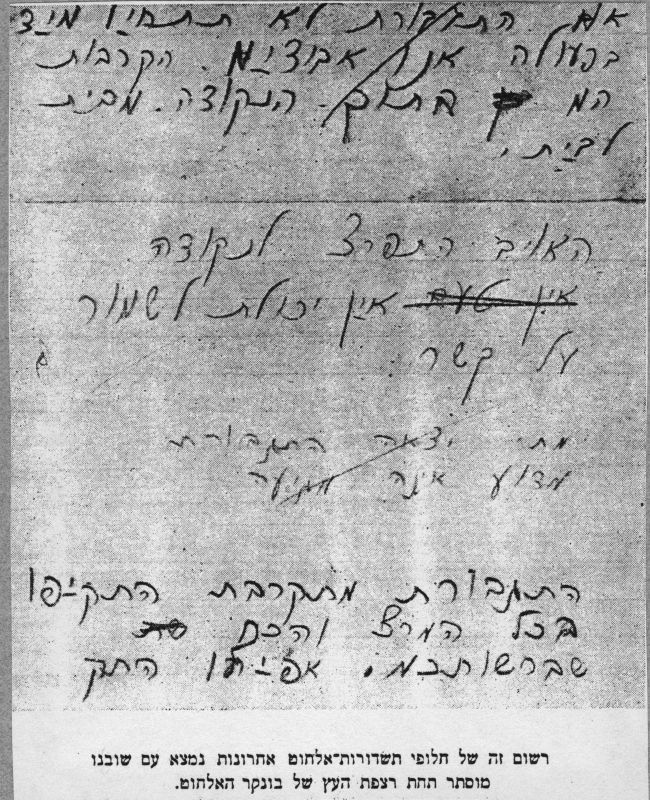 אם התגבורת לא תתחיו מיד
בפעולה אנו אבוצים. הקרבות
המ בתוך הנקודה. מבית
לבית.
האויב התפרצ לנקודה
אין טעם אין יכולת לשמור
על קשר
מתי יצאה התגבורת
מדוע אינה מגיעה
התגבורת מתקרבת התקיפו
בכל המרצ והכח
שברשותכמ. אפילו התק
רשום זה של חלופי תשדורות־אלחוט אחרונות נמצא עם שובנו
מוסתר תחת רצפת העץ של בונקר האלחוט.